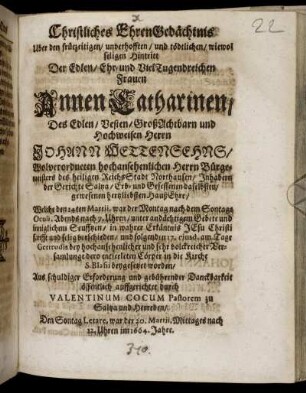 22
Christliches EhrenGedächtnis
Uber den frühzeitigen / unverhofften / und tödtlichen / wiewol
seligen Hintritt
Der Edlen / Ehr- und VielTugendreichen
Frauen
Annen Catharinen /
Des Edlen / Vesten / GroßAchtbarn und
Hochweisen Herrn
JOHANN WETTENSEHNS /
Wolverordneten hochansehenlichen Herrn Bürge-
meisters des heiligen ReichsStadt Northausen / Inhabern
der Gerichte Salza / Erb- und Gesessenen daselbsten /
gewesenen hertzliebsten HaußEhre /
Welche den 14ten Martii. war der Montag nach dem Sontage
Oculi. Abends nach 7. Uhren / unter andächtigem Gebete und
sanfft und selig verschieden / und folgenden 17. ejusd. am Tage
Gertrudis bey hochansehenlicher und sehr volckreicher Ver-
samlunge dero entseelter Cörper in die Kirche
S. Blasii beygesetzet worden /
Aus schuldiger Erforderung und gebührender Danckbarkeit
öffentlich auffgerichtet durch
VALENTINUM COCUM Pastorem zu
Salza und Herreden /
Den Sontag Letare, war der 20. Martii, Mittages nach
12. Uhren im 1664. Jahre.